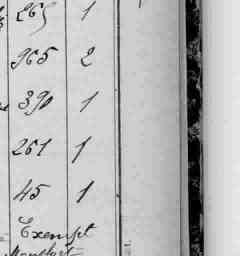 265 1
965 2
390 1
261 1
45 1
Exempt